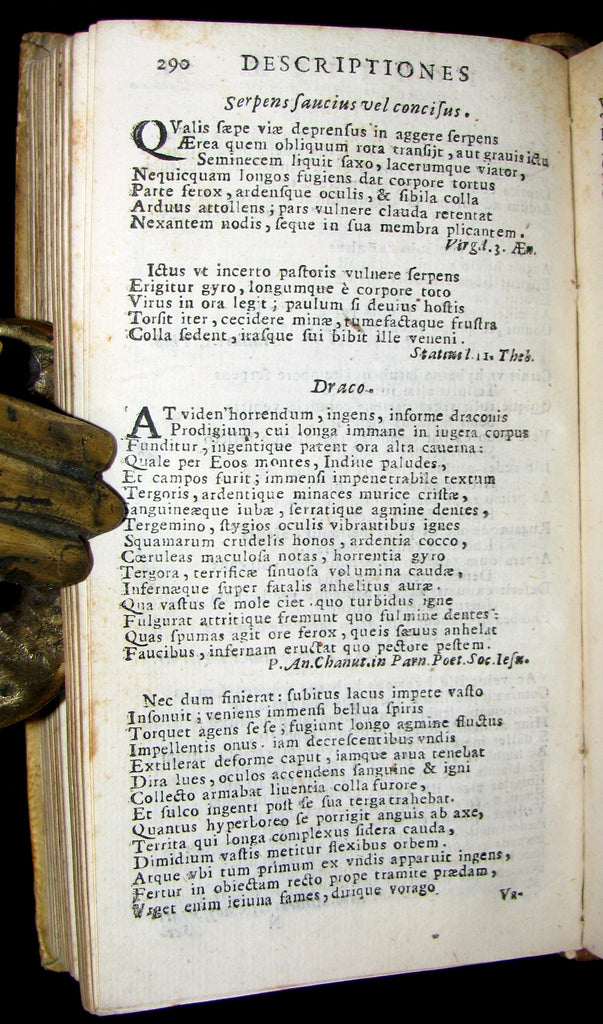 290 DESCRIPTIONES
Serpens ſaucius vel conciſus.
QValis ſæpe viæ deprenſus in aggere ſerpens
Ærea quem obliquum rota tranſijt, aut grauis ictu
Seminecem liquit ſaxo, lacerumque viator,
Nequicquam longos fugiens dat corpore tortus
Parte ferox, ardenſque oculis, & ſibila colla
Arduus attollens; pars vulnere clauda retentat
Nexantem nodis, ſeque in ſua membra plicantem.
Virg.l.3. Æn.
Ictus vt incerto paſtoris vulnere ſerpens
Erigitur gyro, longumque è corpore toto
Virus in ora legit; paulum ſi deuius hoſtis
Torſit iter, cecidere minæ, tumefactaque fruſtra
Colla ſedent, iraſque ſui bibit ille veneni.
Statius l.11. Theb.
Draco.
AT viden'horrendum, ingens, informe draconis
Prodigium, cui longa immane in iugera corpus
Funditur, ingentique patent ora alta cauerna:
Quale per Eoos montes, Indiue paludes,
Et campos furit; immenſi impenetrabile textum
Tergoris, ardentique minaces murice criſtæ,
Sanguineæque iubæ, ſerratique agmine dentes,
Tergemino, ſtygios oculis vibrantibus ignes
Squamarum crudelis honos, ardentia cocco,
Cœruleas maculoſa notas, horrentia gyro
Tergora, terrificæ ſinuoſa volumina caudæ,
Infernæque ſuper fatalis anhelitus auræ.
Qua vaſtus ſe mole ciet quo turbidus igne
Fulgurat attritique fremunt quo fulmine dentes:
Quas ſpumas agit ore ferox, queis ſæuus anhelat
Faucibus, infernam eructat quo pectore peſtem.
P. An. Chanut. in Parn. Poet. Soc. Ieſu.
Nec dum finierat: ſubitus lacus impete vaſto
Inſonuit; veniens immenſi bellua ſpiris
Torquet agens ſe ſe; fugiunt longo agmine fluctus
Impellentis onus. iam decreſcentibus vndis
Extulerat deforme caput, iamque arua tenebat
Dira lues, oculos accendens ſanguine & igni
Collecto armabat liuentia colla furore,
Et ſulco ingenti poſt ſe ſua terga trahebat.
Quantus hyperboreo ſe porrigit anguis ab axe,
Territa qui longa complexus ſidera cauda,
Dimidium vaſtis metitur flexibus orbem.
Atque vbi tum primum ex vndis apparuit ingens,
Fertur in obiectam recto prope tramite prædam,
Vrget enim ieiuna fames, dirique vorago
Va-